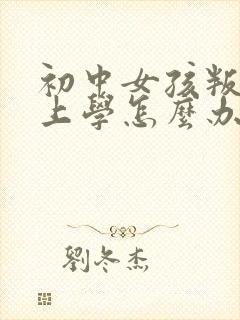 初中女孩叛
上學怎麼办
劉冬杰